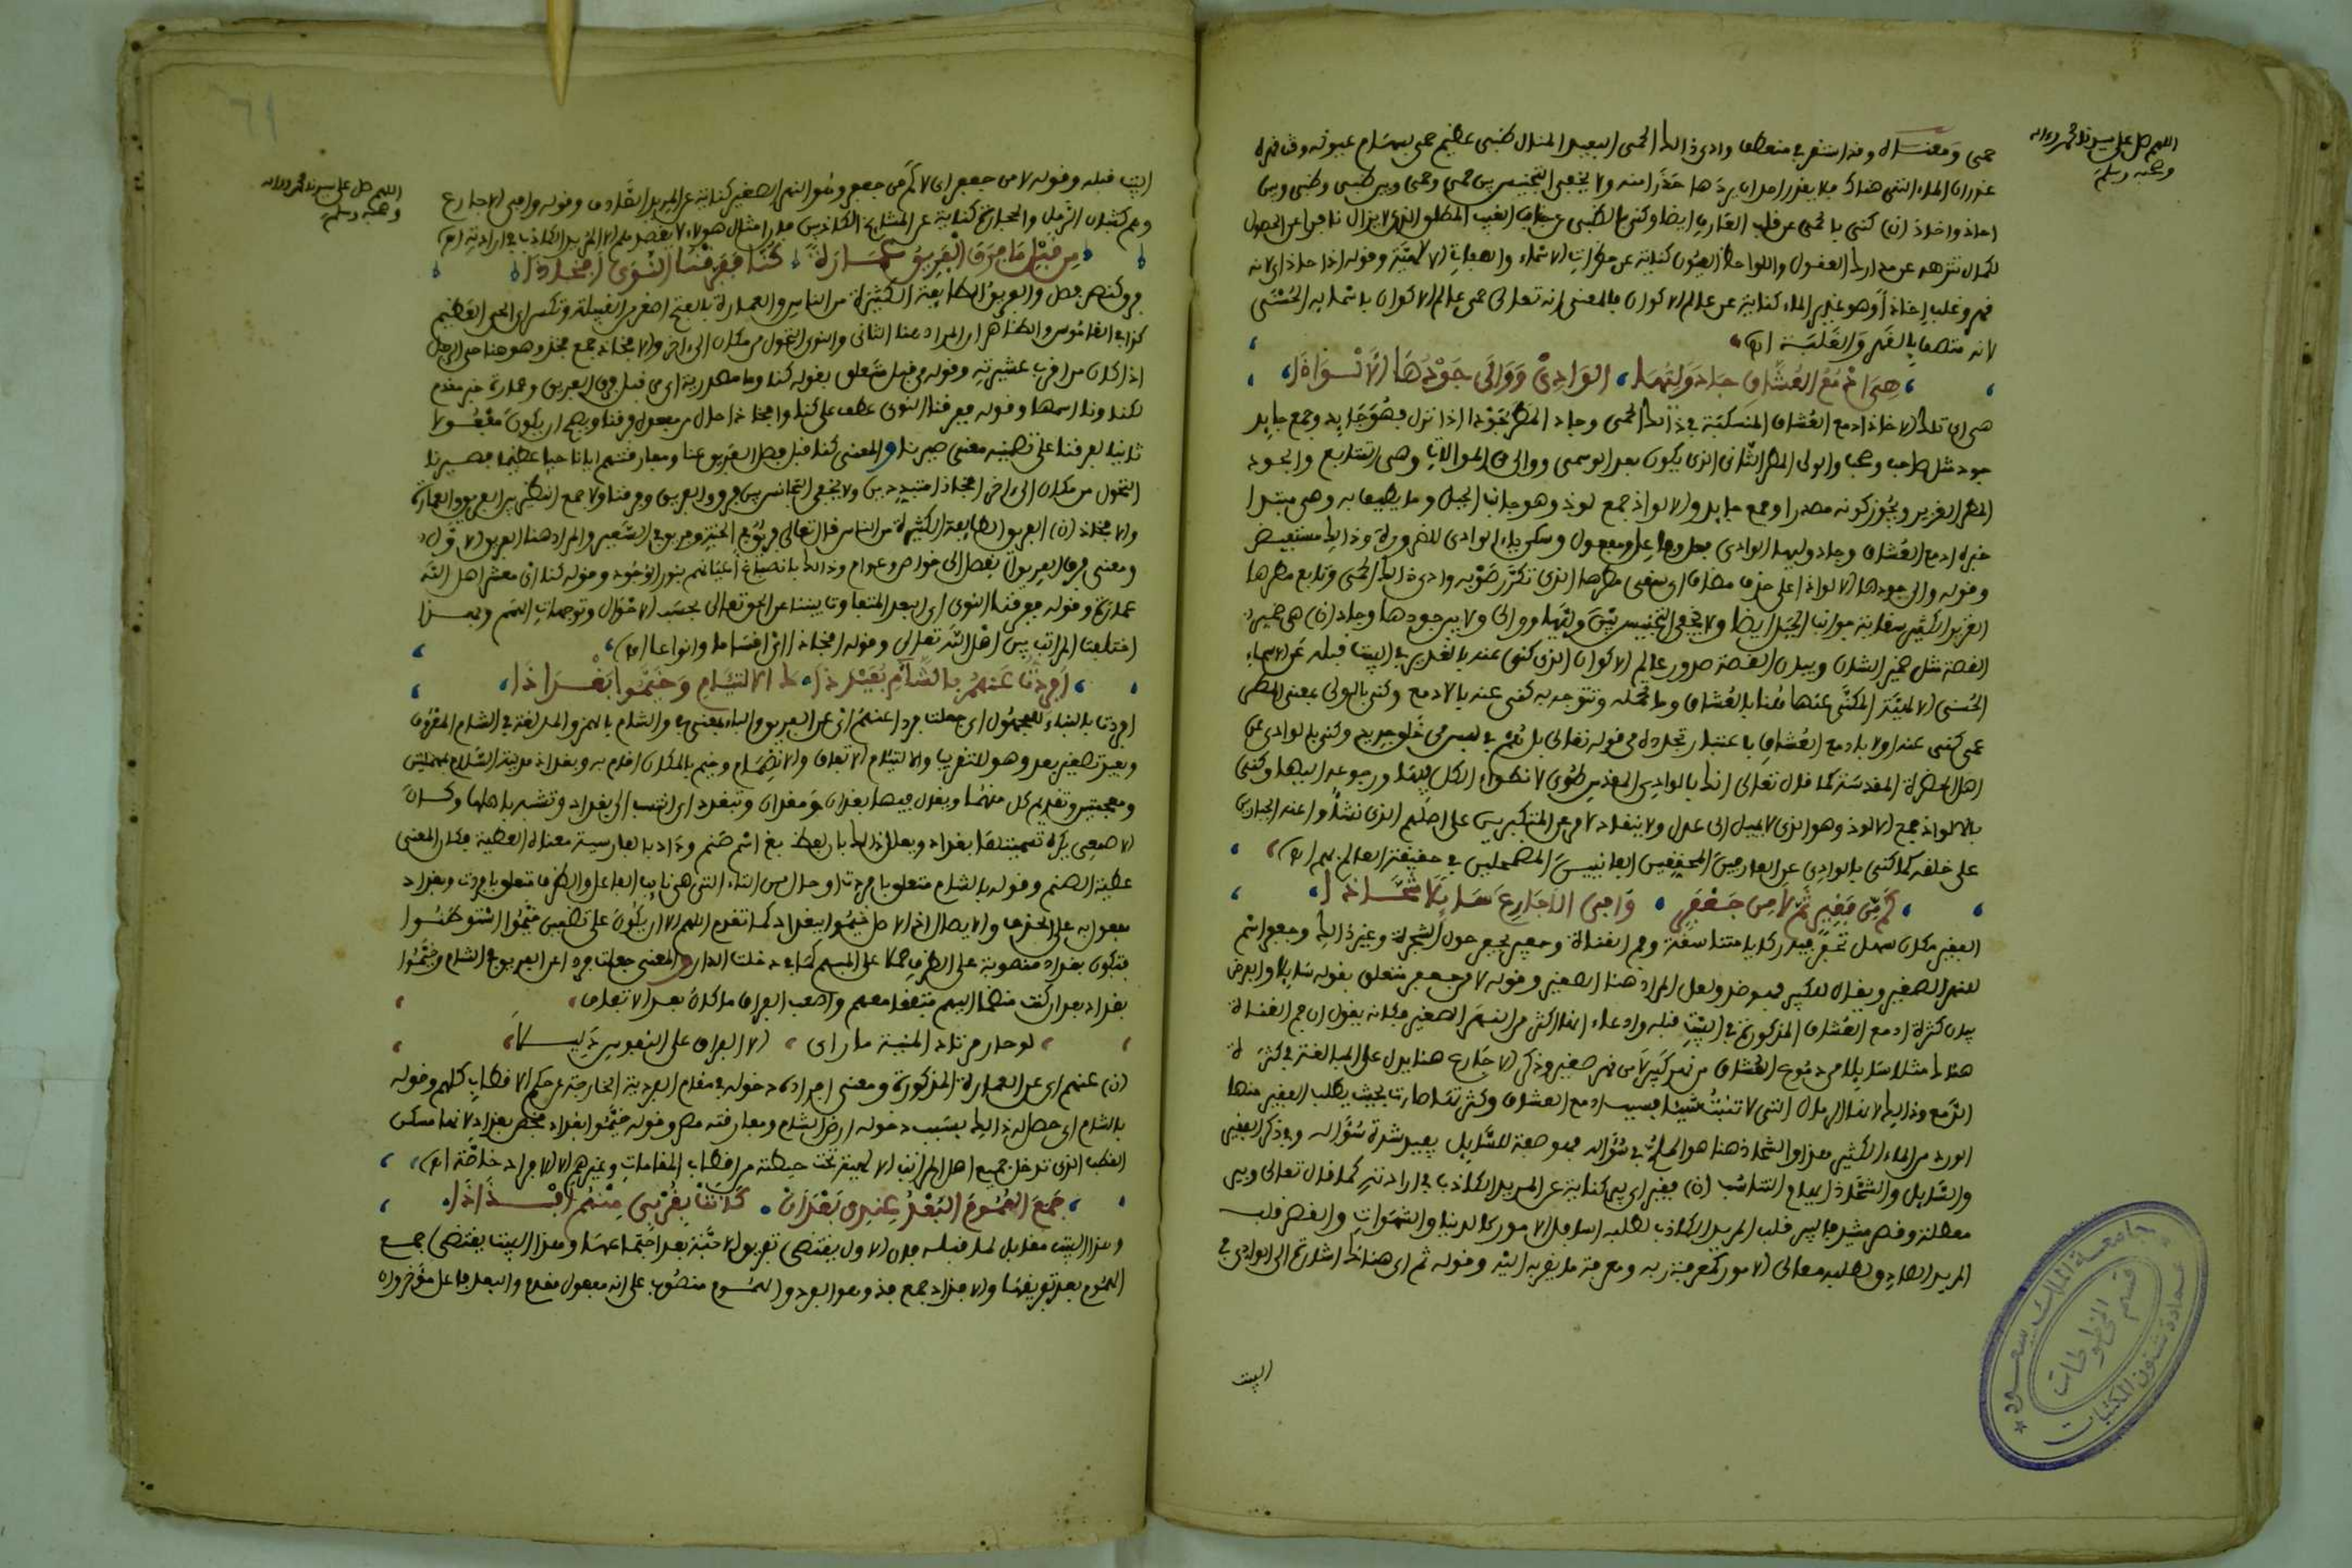 اللهم صل على سيدنا محمد وءاله
وصحبه وسلم
حمى ومعناه وقد استقر في منعطف وادي ذالك الحمى البعيد المنال ظبي عظيم حمى بسهام عيونه وقت
غدران الماء التي هناك فلا يقدر احد ان يردها حذرا منه ولا يخفى التجنيس بين حمى وحمى وبين ظبي وظبي وبين
احاذ واخاذ (ن) كنى بالحمى عن قلب العارف ايضا وكنى بالظبي عن الغيب المطلق الذي لا يزال نافرا عن الحصول
لكمال تنزهه عن مدارك العقول واللواحظ العيون كناية عن الاسماء والصفات الالهية وقوله اذا حاذ اي لانه
قهر وغلب اخاذا وهو غدير الماء كناية عن عالم الاكوان فالمعنى انه تعالى حمى عالم الاكوان باسمائه الحسنى
لانه متصف بالقهر والغلبة اهـ
هي ادمع العشاق جاد وليها الوادي ووالى جودها الالواذا
هي اي تلك الاخاذ ادمع العشاق المنسكبة في ذالك الحمى وجاد المطر جودا اذا نزل فهو جايد وجمع جايد
جود مثل صاحب وصحب والولي المطر الثاني الذي يكون بعد الوسمي ووالى من الموالاة وهي التتابع والجود
المطر الغزير ويجوز كونه مصدرا وجمع جايد والالواذ جمع لوذ وهو جانب الجبل وما يطيف به وهي مبتدا
خبره ادمع العشاق وجاد وليها الوادي فعل وفاعل ومفعول وسكن ياء الوادي للضرورة وذالك مستفيض
وقوله ووالى جودها الالواذا على حذف مضاف اي سقى مطرها الذي تكرر صوبه وادي ذالك الحمى وتابع مطرها
الغزير الكثير سقاية جوانب الجبل ايضا ولا يخفى التجنيس بين وليها ووالى ولا بين جودها وجاد (ن) هي ضمير
القصة مثل ضمير الشان وبيان القصة صدور عالم الاكوان الذي كنى عنه بالغدير في البيت قبله عن الاسماء
الحسنى الالهية المكنى عنها هنا بالعشاق وما تحمله وتتوجه به كنى عنه بالادمع وكنى بالولي بمعنى المطر
عمى كنى عنه اولا بادمع العشاق باعتبار تجدده في قوله تعالى بل هم في لبس من خلق جديد وكنى بالوادي عن
اهل الحضرة المقدسة كما قال تعالى انك بالوادي المقدس طوى لانطواء الكل فيها ورجوعه اليها وكنى
بالالواذ جمع الالوذ وهو الذي لا يميل الى عدل ولا ينقاد لامر عن المتكبرين على اصلهم الذي نشاوا عنه الجبارين
على خلقه كما كنى بالوادي عن العارفين المحققين الفانيين المضمحلين في حقيقة العالم بهم اهـ
كم من فقير ثم لا من جعفر وافى الاجارع سايلا شحاذا
الفقير مكان سهل تحفر فيه ركايا متناسقة وفم القناة وحفير يحفر حول الشجرة وغير ذالك وجعفر اسم
للنهر الصغير ويقال للكبير فهو ضد ولعل المراد هنا الصغير وقوله لا من جعفر متعلق بقوله سايلا والغرض
بيان كثرة ادمع العشاق المذكورة في البيت قبله وادعاء انها اكثر من النهر الصغير فكانه يقول ان فم القناة
هناك مثلا سايلا من دموع العشاق من نهر كبير لا من نهر صغير وذكر الاجارع هنا يدل على المبالغة في كثرة
الدمع وذالك لانها الرمال التي لا تنبت شيئا فبسبب ادمع العشاق وكثرتها صارت بحيث يطلب الفقير منها
الورد من الماء الكثير هذا والشحاذ هنا هو الملح في سؤاله فهو صفة للسايل يفيد شدة سؤاله وفي ذكر الفقير
والسايل والشحاذ ايهام التناسب (ن) فقير اي بير كناية عن المريد الكاذب في ارادته كما قال تعالى وبير
معطلة وقصر مشيد فالبير قلب المريد الكاذب لطلبه اسافل الامور كالدنيا والشهوات والقصر قلب
المريد الصادق لطلبه معالي الامور كمعرفة ربه ومعرفة ما يقربه اليه وقوله ثم اي هناك اشارة الى الوادي في
البيت
٦١
اللهم صل على سيدنا محمد وءاله
وصحبه وسلم
البيت قبله وقوله لا من جعفر اي لا كم من جعفر وهو النهر الصغير كناية عن المريد الصادق وقوله وافى الاجارع
وهم كثبان الرمل والحجارة كناية عن المشايخ الكاذبين فان امثال هولاء لا يقصدهم الا المريد الكاذب في ارادته اهـ
من قبل ما فرق الفريق عمارة كنا ففرقنا النوى افخاذا
فرق كنصر فصل والفريق الطايفة الكثيرة من الناس والعمارة بالفتح اصغر من القبيلة وتكسر او الحي العظيم
كذا في القاموس والظاهر ان المراد هنا الثاني والنوى التحول من مكان الى ءاخر والافخاذ جمع فخذ وهو هنا حي الرجل
اذا كان من اقرب عشيرته وقوله من قبل متعلق بقوله كنا وما مصدرية اي من قبل فرق الفريق وعمارة خبر مقدم
لكنا ونا اسمها وقوله ففرقنا النوى عطف على كنا وافخاذا حال من مفعول فرقنا ويصح ان يكون مفعولا
ثانيا لفرقنا على تضمينه معنى صيرنا والمعنى كنا قبل فصل الفريق عنا ومفارقتهم ايانا حيا عظيما فصيرنا
التحول من مكان الى ءاخر افخاذا متبددين ولا يخفى التجانس بين فرق والفريق وفرقنا ولا جمع النظير بين الفريق والعمارة
والافخاذ (ن) الفريق الطايفة الكثيرة من الناس قال تعالى فريق في الجنة وفريق في السعير والمراد هنا الفريق الاول
ومعنى فرق الفريق انفصل الى خواص وعوام وذالك بانصباغ اعيانهم بنور الوجود وقوله كنا اي معشر اهل الله
عمارة وقوله ففرقنا النوى اي البعد المتفاوت بيننا عن الحق تعالى بحسب الاحوال وتوجهات الهمم وبهذا
اختلفت المراتب بين اهل الله تعالى وقوله افخاذا اي اقساما وانواعا اهـ
افردت عنهم بالشآم بعيد ذاك الالتيام وخيموا بغداذا
افردت بالبناء للمجهول اي جعلت فردا عنهم اي عن الفريق والباء بمعنى في والشام بالهمز والمد لغة في الشام المعروف
وبعيد تصغير بعد وهو للتقريب والالتيام الاتفاق والانضمام وخيم بالمكان اقام به وبغداذ مدينة السلام بمهملتين
ومعجمتين وتقديم كل منهما ويقال فيها بغدان ومغدان وتبغدد اي انتسب الى بغداد وتشبه باهلها وكان
الاصمعي يكره تسميتها بغداد ويعلل ذالك بان لفظ بغ اسم صنم وداد بالفارسية معناه العطية فكان المعنى
عطية الصنم وقوله بالشام متعلق بافردت او حال من التاء التي هي نايب الفاعل والظرف متعلق بافردت وبغداد
مفعول به على الحذف والايصال اذ الاصل خيموا ببغداد كما تقدم اللهم الا ان يكون على تضمين خيموا استوطنوا
فتكون بغداد منصوبة على الظرف حملا على المبهم كما في دخلت الدار والمعنى جعلت فردا عن الفريق في الشام وخيموا
بغداد بعد ان كنت منضما اليهم متفقا معهم واصعب الفراق ما كان بعد الاتفاق
لو حار مرتاد المنية ما راى الا الفراق على النفوس دليلا
(ن) عنهم اي عن العمارة المذكورة ومعنى افراده دخوله في مقام الفردية الخارجة عن حكم الاقطاب كلهم وقوله
بالشام اي حصل له ذالك بسبب دخوله ارض الشام ومفارقته مصر وقوله خيموا بغداد فخص بغداد لانها مسكن
القطب الذي تدخل جميع اهل المراتب الالهية تحت حيطته من اقطاب المقامات وغيرهم الا الافراد خاصة اهـ
جمع الهموم البعد عندي بعد ان كانت بقربي منهم افذاذا
وهذا البيت مقابل لما قبله فان الاول يقتضي تفريق الاحبة بعد اجتماعها وهذا البيت يقتضي جمع
الهموم بعد تفريقها والافذاذ جمع فذ وهو الفرد والهموم منصوب على انه مفعول مقدم والبعد فاعل مؤخر وان
جامعة الملك سعود
قسم المخطوطات
عمادة شئون المكتبات